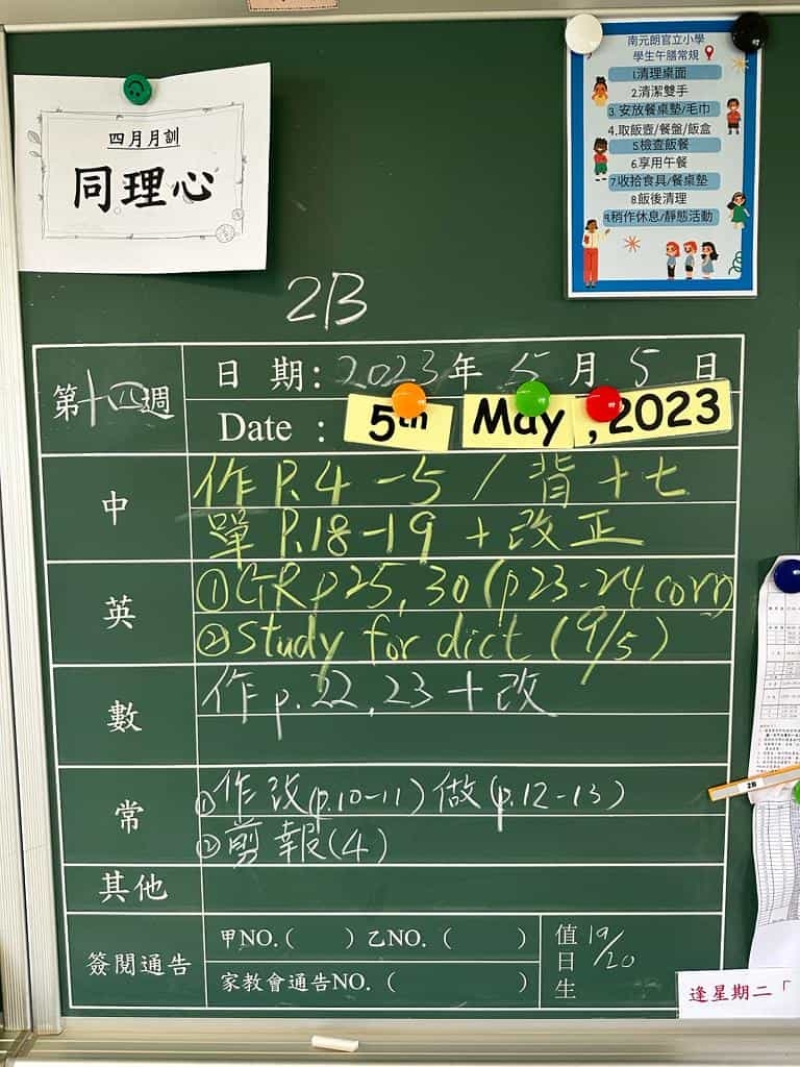 四月月訓
同理心
南元朗官立小學
學生午膳常規
1.清理桌面
2.清潔雙手
3.安放餐桌墊/毛巾
4.取飯壺/餐盤/飯盒
5.檢查飯餐
6.享用午餐
7.收拾食具/餐桌墊
8.飯後清理
9.稍作休息/靜態活動
2B
第十四週
日期：2023年5月5日
Date : 5th May, 2023
中
作P.4-5/背十七
單P.18-19+改正
英
①GR p25, 30 (p23-24 corr)
②Study for dict (9/5)
數
作p.22,23+改
常
①作改(p.10-11)做(p.12-13)
②剪報(4)
其他
簽閱通告
甲NO.( ) 乙NO.( )
家教會通告NO.( )
值日生 19/20
2B
逢星期二「